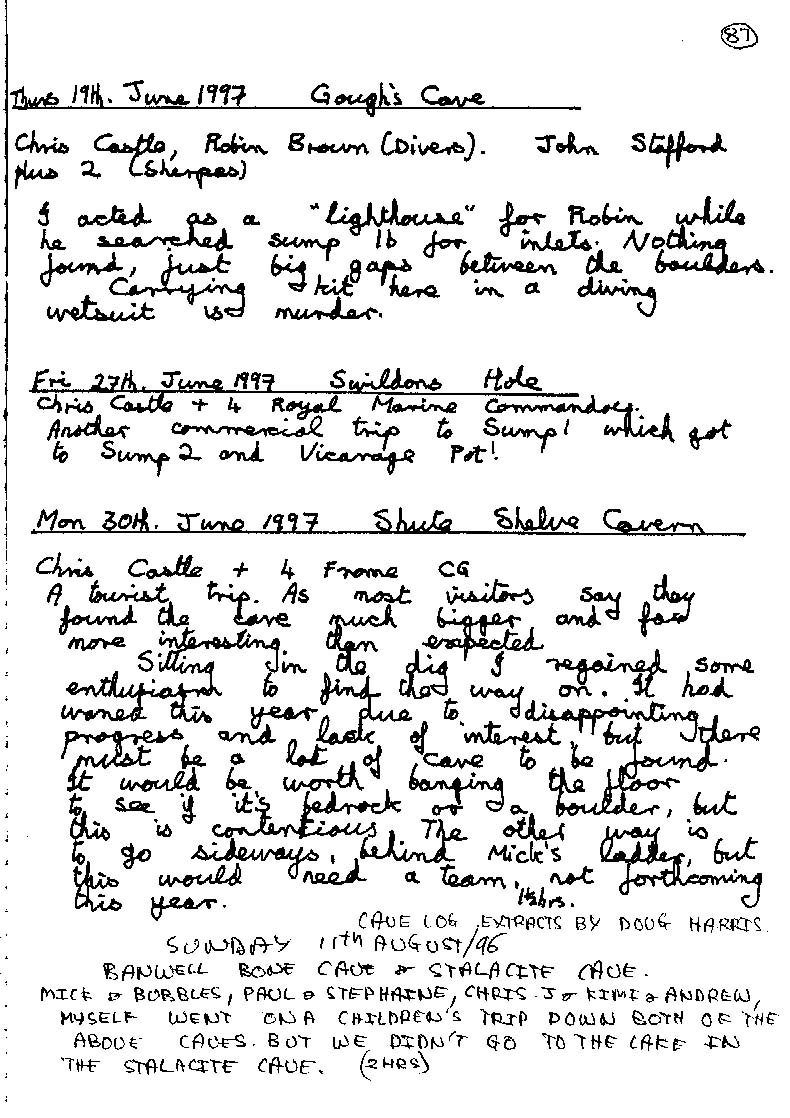 87
Thurs 19th. June 1997 Gough's Cave
Chris Castle, Robin Brown (Divers). John Stafford
plus 2 (Sherpas)
I acted as a "lighthouse" for Robin while
he searched sump 1b for inlets. Nothing
found, just big gaps between the boulders.
Carrying kit here in a diving
wetsuit is murder.
Fri 27th. June 1997 Swildons Hole
Chris Castle + 4 Royal Marine Commandoes.
Another commercial trip to Sump 1 which got
to Sump 2 and Vicarage Pot!
Mon 30th. June 1997 Shute Shelve Cavern
Chris Castle + 4 Frome CG
A tourist trip. As most visitors say they
found the cave much bigger and far
more interesting than expected
Sitting in the dig I regained some
enthusiasm to find the way on. It had
waned this year due to disappointing
progress and lack of interest, but there
must be a lot of cave to be found.
It would be worth banging the floor
to see if it's bedrock or a boulder, but
this is contentious. The other way is
to go sideways, behind Mick's ladder, but
this would need a team, not forthcoming
this year. 1½hrs.
CAVE LOG EXTRACTS BY DOUG HARRIS.
SUNDAY 11TH AUGUST/96
BANWELL BONE CAVE & STALACITE CAVE.
MICK & BUBBLES, PAUL & STEPHAINE, CHRIS. J & KIMI & ANDREW,
MYSELF WENT ON A CHILDREN'S TRIP DOWN BOTH OF THE
ABOVE CAVES. BUT WE DIDN'T GO TO THE LAKE IN
THE STALACITE CAVE. (2HRS)